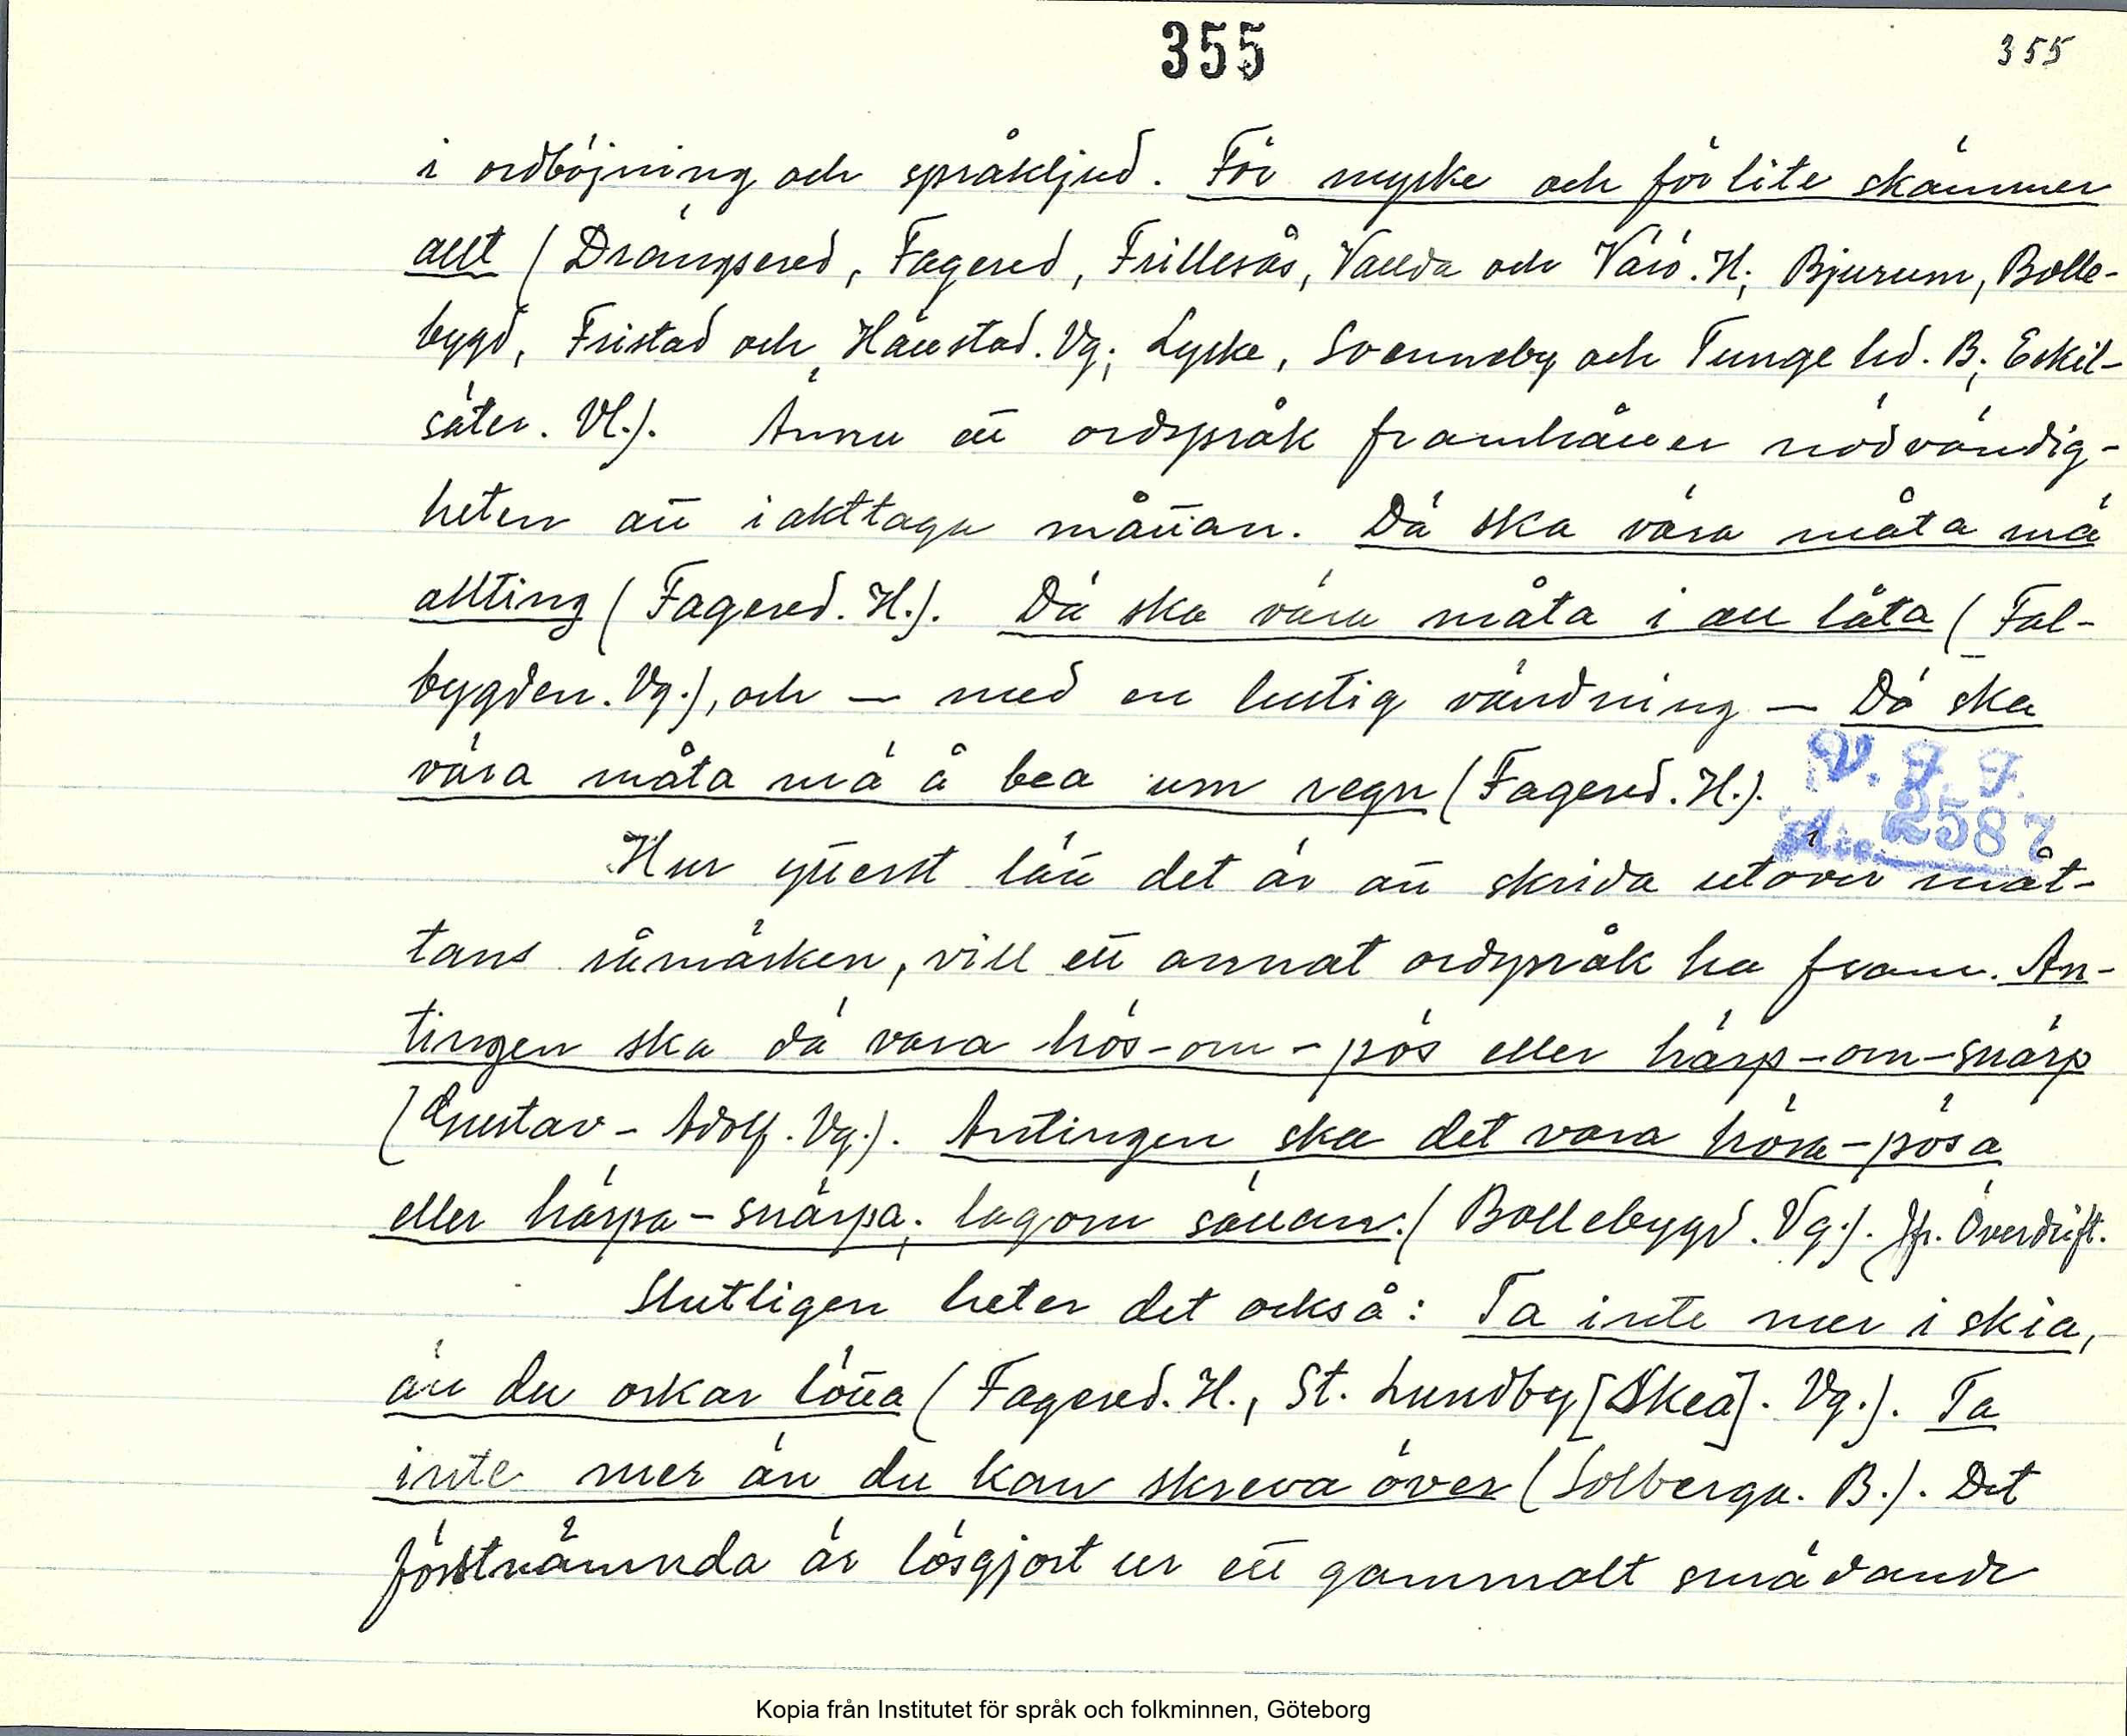 355
355
i ordböjning och språkljud. För mycke och för lite skämmer
allt (Drängsered, Fagered, Frillesås, Vallda och Värö. H; Bjurum, Bolle-
bygd, Fristad och Hällstad. Vg; Lycke, Svenneby och Tunge hd. B; Eskil-
säter. Vl.). Ännu ett ordspråk framhäver nödvändig-
heten att iakttaga måttan. Dä ska våra måta mä
allting (Fagered. H.). Dä ska våra måta i all låta (Fal-
bygden. Vg.), och — med en lustig vändning — Dä ska
våra måta mä å bea um regn (Fagered. H.).
V. F. F.
Acc. 2587
Hur ytterst lätt det är att skrida utöver måt-
tans råmärken, vill ett annat ordspråk ha fram. An-
tingen ska dä vara hös-om-pös eller härp-om-snärp
(Gustav-Adolf. Vg.). Antingen ska det vara hösa-pösa
eller härpa-snärpa; lagom sällan. (Bollebygd. Vg.). Jfr. Överdrift.
Slutligen heter det också: Ta inte mer i skia,
än du orkar löfta (Fagered. H., St. Lundby [Skeä]. Vg.). Ta
inte mer än du kan skreva över (Solberga. B.). Det
förstnämnda är lösgjort ur ett gammalt smädande
Kopia från Institutet för språk och folkminnen, Göteborg